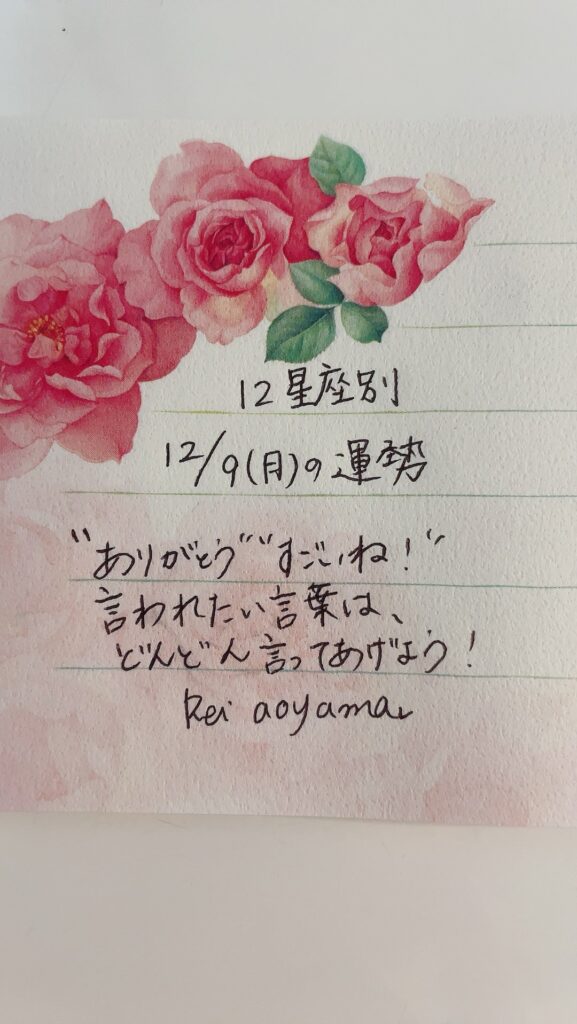 12星座別
12/9(月)の運勢
"ありがとう" "すごいね!"
言われたい言葉は、
どんどん言ってあげよう!
Rei aoyama